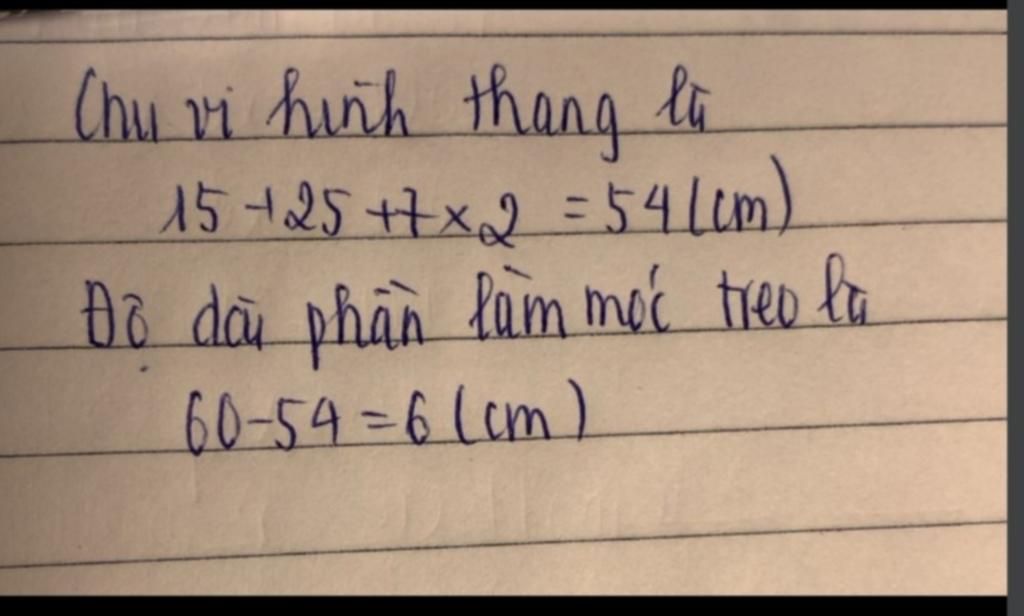 Chu vi hình thang là
15+25+7×2 = 54 (cm)
Độ dài phần làm móc treo là
60-54=6 (cm)